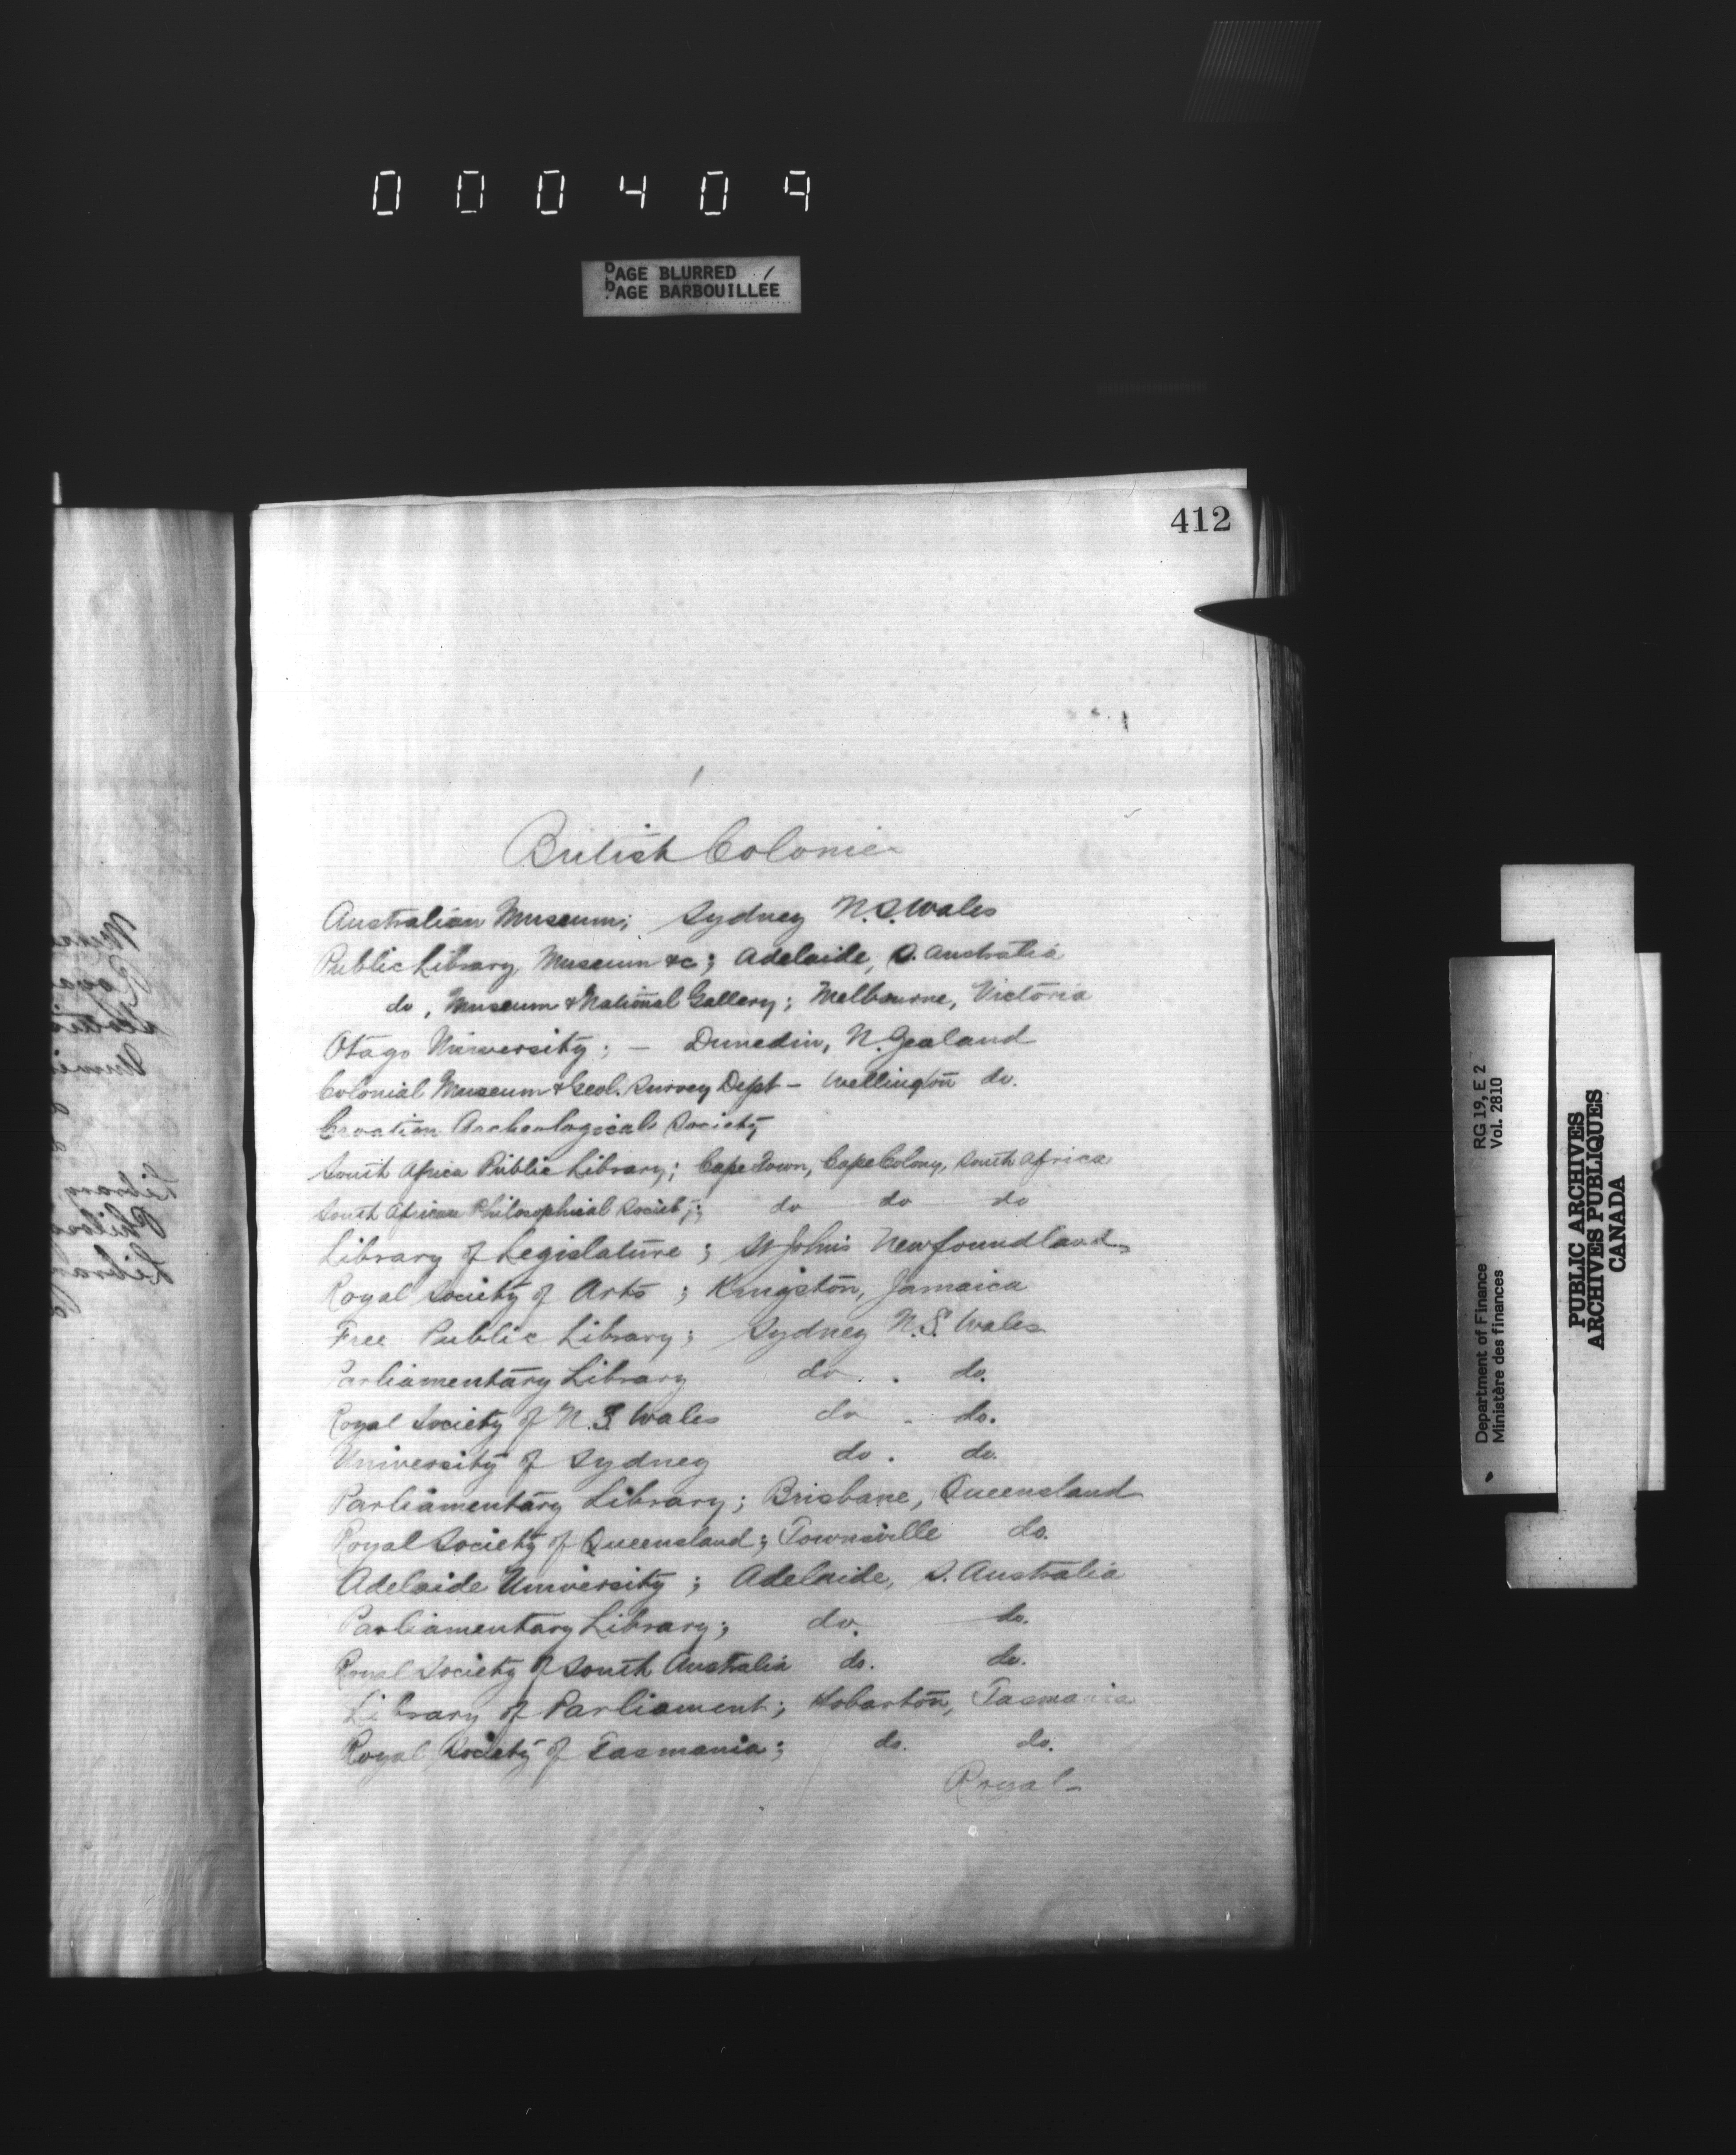 000409
PAGE BLURRED
PAGE BARBOUILLÉE
412
British Colonies
Australian Museum; Sydney N.S. Wales
Public Library, Museum &c; Adelaide, S. Australia
do, Museum & National Gallery; Melbourne, Victoria
Otago University; — Dunedin, N. Zealand
Colonial Museum & Geol. Survey Dept — Wellington do.
Croatian Archeological Society
South Africa Public Library; Cape Town, Cape Colony, South Africa
South African Philosophical Society; do do do
Library of Legislature; St John's Newfoundland
Royal Society of Arts; Kingston, Jamaica
Free Public Library; Sydney N.S. Wales
Parliamentary Library do. do.
Royal Society of N.S. Wales do - do.
University of Sydney do. do.
Parliamentary Library; Brisbane, Queensland
Royal Society of Queensland; Townsville do.
Adelaide University; Adelaide, S. Australia
Parliamentary Library; do. do.
Royal Society of South Australia do. do.
Library of Parliament; Hobarton, Tasmania
Royal Society of Tasmania; do. do.
Royal-
Department of Finance RG 19, E 2
Ministère des finances Vol. 2810
PUBLIC ARCHIVES
ARCHIVES PUBLIQUES
CANADA